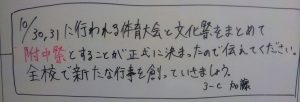 10/30,31に行われる体育大会と文化祭をまとめて
附中祭とすることが正式に決まったので伝えてください。
全校で新たな行事を創っていきましょう。
3-C 加藤